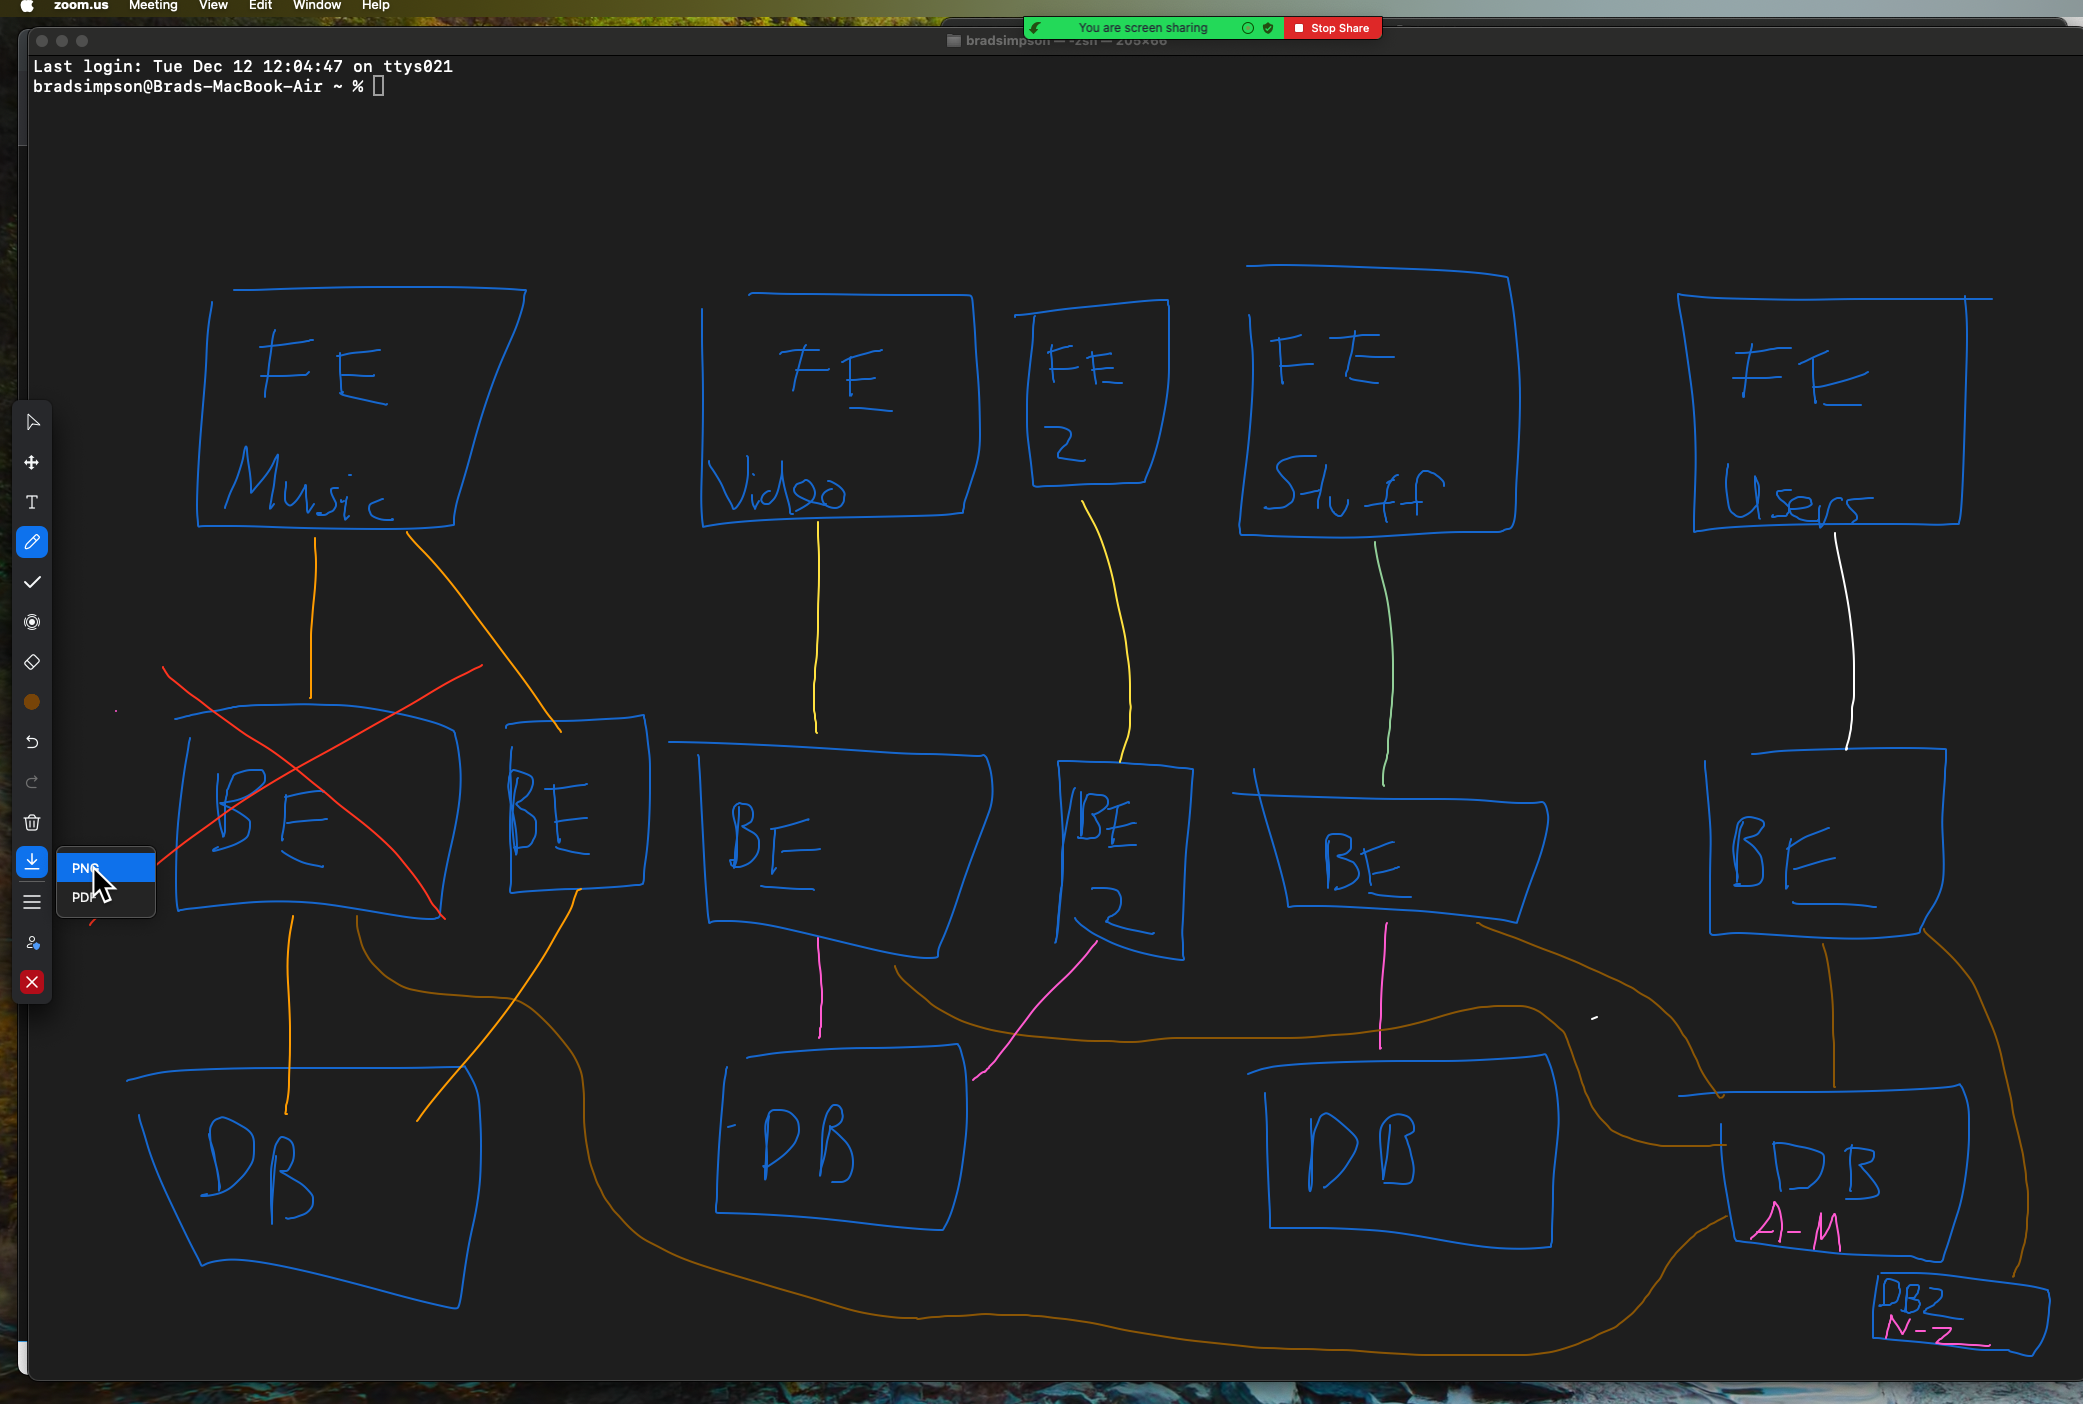 zoom.us Meeting View Edit Window Help
You are screen sharing Stop Share
Last login: Tue Dec 12 12:04:47 on ttys021
bradsimpson@Brads-MacBook-Air ~ %
FE
Music
FE
Video
FE
2
FE
Stuff
FE
Users
BE
BE
BE
BE
2
BE
BE
T
PNG
PDF
DB
DB
DB
DB
A-M
DB2
N-Z